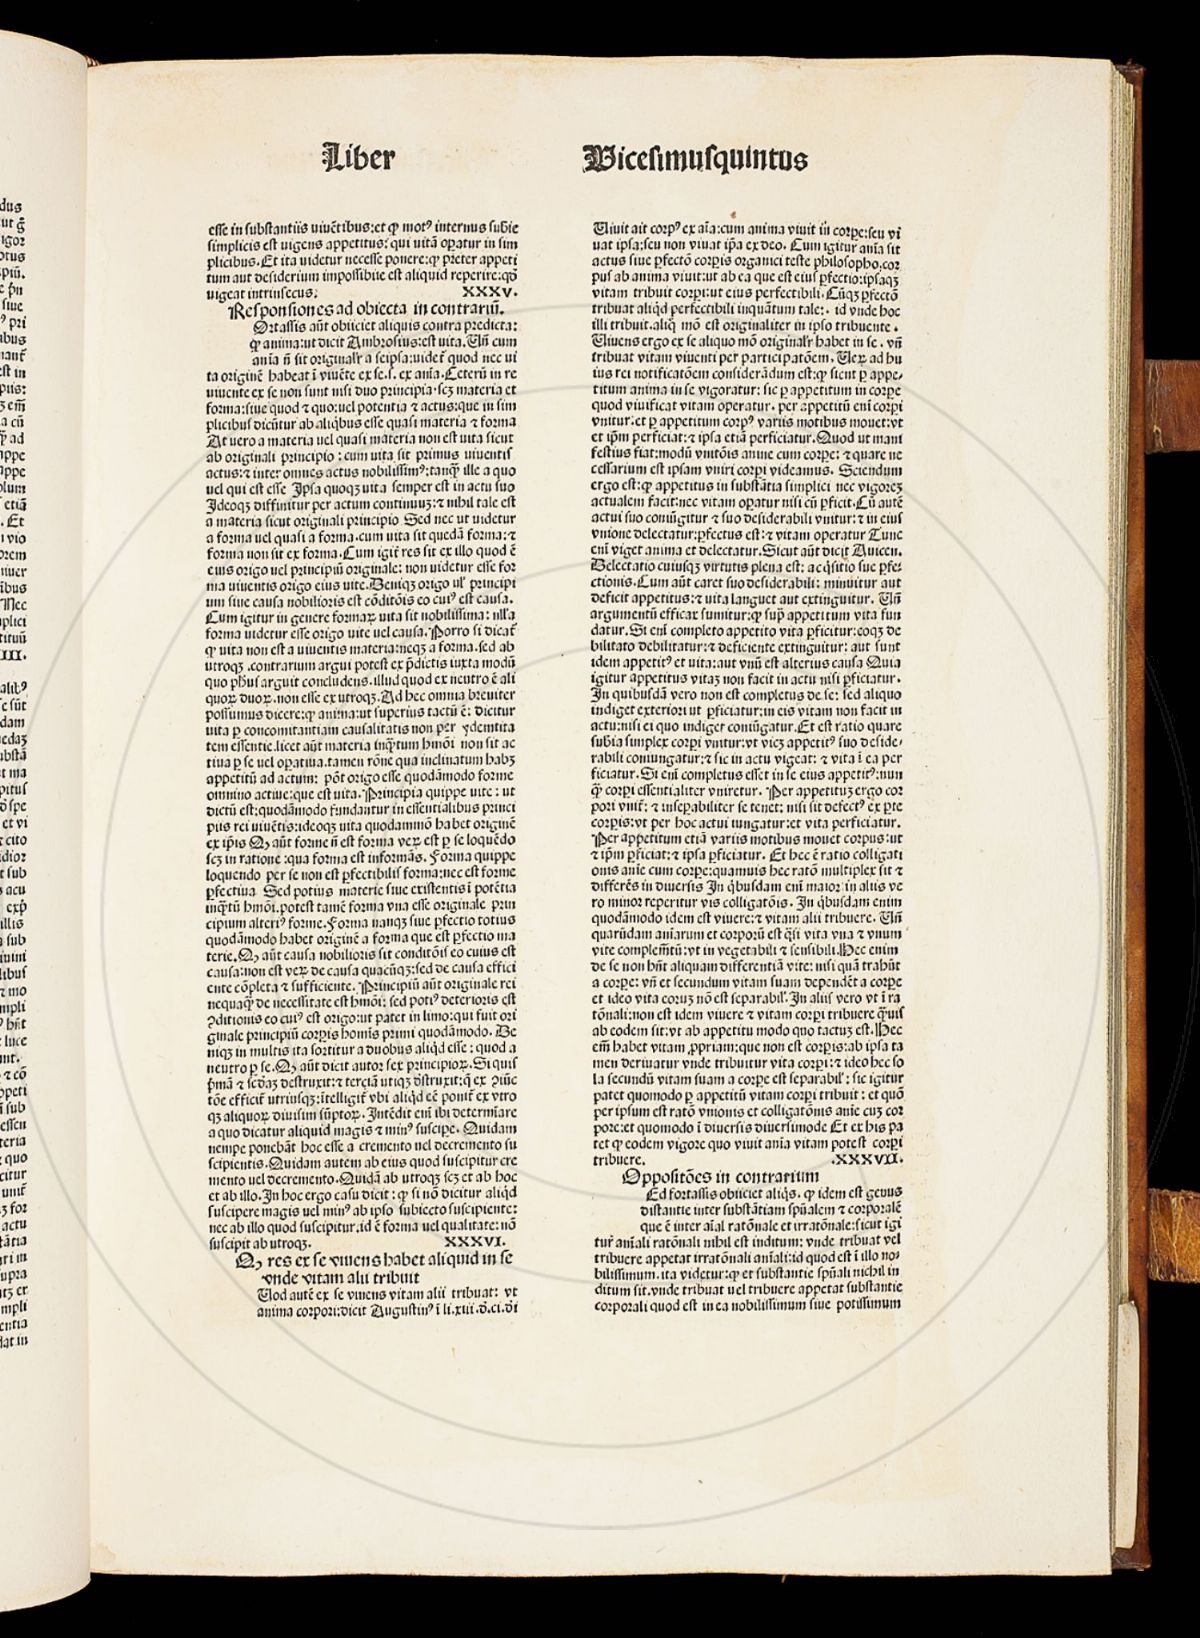 Liber Vicesimusquintus
esse in substantiis viuẽtibus: et ꝙ motꝰ internus subie
simplicis est vigens appetitus: qui uitã oꝑatur in sim
plicibus. Et ita uidetur necesse ponere: ꝙ preter appeti
tum aut desiderium impossibile est aliquid reperire: qđ
uigeat intrinsecus. XXXV.
Responsiones ad obiecta in contrariũ.
Ortassis aũt obiiciet aliquis contra predicta:
ꝙ anima: ut dicit Ambrosius: est uita. Uñ cum
aĩa ñ sit originalr̃ a seipsa: uidet̃ quod nec ui
ta originẽ habeat ĩ viuẽte ex se. s. ex aĩa. Ceterũ in re
uiuente ex se non sunt nisi duo principia. scꝫ materia et
forma: siue quod ⁊ quo: uel potentia ⁊ actus: que in sim
plicibus dicũtur ab aliq̃bus esse quasi materia ⁊ forma
At uero a materia uel quasi materia non est uita sicut
ab originali principio: cum uita sit primus uiuentis
actus: ⁊ inter omnes actus nobilissimꝰ: tanq̃ ille a quo
uel qui est esse Ipsa quoqꝫ uita semper est in actu suo
Ideoqꝫ diffinitur per actum continuuꝫ: ⁊ nihil tale est
a materia sicut originali principio Sed nec ut uidetur
a forma uel quasi a forma. cum uita sit quedã forma: ⁊
forma non sit ex forma. Cum igit̃ res sit ex illo quod ẽ
eius origo uel principiũ originale: non uidetur esse for
ma uiuentis origo eius uite. Deniqꝫ origo ul̃ principi
um siue causa nobilioris est cõditõis eo cuiꝰ est causa.
Cum igitur in genere formaꝝ uita sit nobilissima: nulla
forma uidetur esse origo uite uel causa. Porro si dicat̃
ꝙ uita non est a uiuentis materia: neqꝫ a forma. sed ab
utroqꝫ. contrarium argui potest ex p̃dictis iuxta modũ
quo ph̃us arguit concludens. illud quod ex neutro ẽ ali
quoꝝ duoꝝ. non esse ex utroqꝫ. Ad hec omnia breuiter
possumus dicere: ꝙ anima: ut superius tactũ ẽ: dicitur
uita ꝑ concomitantiam causalitatis non per ydemtita
tem essentie. licet aũt materia inq̃tum hmõi non sit ac
tiua ꝑ se uel oꝑatiua. tamen rõne qua inclinatum habꝫ
appetitũ ad actum: põt origo esse quodãmodo forme
omnino actiue: que est uita. Principia quippe uite: ut
dictũ est: quodãmodo fundantur in essentialibus princi
piis rei uiuẽtis: ideoqꝫ uita quodammõ habet originẽ
ex ip̃is Qꝙ aũt forme ñ est forma veꝝ est ꝑ se loquẽdo
scꝫ in ratione: qua forma est informãs. Forma quippe
loquendo per se non est ꝑfectibilis forma: nec est forme
ꝑfectiua Sed potius materie siue existentis ĩ potẽtia
inq̃tũ hmõi. potest tamẽ forma vna esse originale prin
cipium alteriꝰ forme. Forma nanqꝫ siue ꝑfectio totius
quodãmodo habet originẽ a forma que est ꝑfectio ma
terie. Qꝙ aũt causa nobilioris sit conditõis eo cuius est
causa: non est veꝝ de causa quacũqꝫ: sed de causa effici
ente cõpleta ⁊ sufficiente. Principiũ aũt originale rei
nequaq̃ de necessitate est hmõi: sed potiꝰ deterioris est
ꝯditionis eo cuiꝰ est origo: ut patet in limo: qui fuit ori
ginale principiũ corꝑis homĩs primi quodãmodo. De
niqꝫ in multis ita sortitur a duobus aliq̃d esse: quod a
neutro ꝑ se. Qꝙ aũt dicit autor sex principioꝝ. Si quis
p̃mã ⁊ scđaꝫ destruxit: ⁊ terciã utiqꝫ đstruxit: q̃ ex ꝯiũc
tõe efficit̃ utriusqꝫ: ĩtelligit̃ vbi aliq̃d eẽ ponit̃ ex vtro
qꝫ aliquoꝝ diuisim sũptoꝝ. Intẽdit eni ibi determĩare
a quo dicatur aliquid magis ⁊ minꝰ suscipe. Quidam
nempe ponebãt hoc esse a cremento uel decremento su
scipientis. Quidam autem ab eius quod suscipitur cre
mento uel decremento. Quidã ab utroqꝫ scꝫ et ab hoc
et ab illo. In hoc ergo casu dicit: ꝙ si nõ dicitur aliq̃d
suscipere magis uel minꝰ ab ipso subiecto suscipiente:
nec ab illo quod suscipitur. id ẽ forma uel qualitate: nõ
suscipit ab utroqꝫ. XXXVI.
Qꝙ res ex se viuens habet aliquid in se
vnde vitam alii tribuit
Uod autẽ ex se viuens vitam alii tribuat: vt
anima corpori: dicit Augustinꝰ ĩ li. xiii. đ. ci. đi
Viuit ait corpꝰ ex aĩa: cum anima viuit in corꝑe: seu vi
uat ipsa: seu non viuat ip̃a ex deo. Cum igitur aĩa sit
actus siue ꝑfectõ corꝑis organici teste philosopho. cor
pus ab anima viuit: ut ab ea que est eius ꝑfectio: ipsaqꝫ
vitam tribuit corꝑi: ut eius perfectibili. Cũqꝫ ꝑfectõ
tribuat aliq̃d perfectibili inquãtum tale: id vnde hoc
illi tribuit. aliq̃ mõ est originaliter in ipso tribuente.
Viuens ergo ex se aliquo mõ originalr̃ habet in se. vñ
tribuat vitam viuenti per participatõem. Ueꝝ ad hu
ius rei notificatõem considerãdum est: ꝙ sicut ꝑ appe-
titum anima in se vigoratur: sic ꝑ appetitum in corꝑe
quod viuificat vitam operatur. per appetitũ eni corꝑi
vnitur: et ꝑ appetitum corpꝰ variis motibus mouet: vt
et ip̃m perficiat: ⁊ ipsa etiã perficiatur. Quod ut mani
festius fiat: modũ vnitõis anime cum corꝑe: ⁊ quare ne
cessarium est ipsam vniri corꝑi videamus. Sciendum
ergo est: ꝙ appetitus in substãtia simplici nec vigoreꝫ
actualem facit: nec vitam oꝑatur nisi cũ ꝑficit. Cũ autẽ
actui suo coniũgitur ⁊ suo desiderabili vnitur: ⁊ in eius
vnione delectatur: ꝑfectus est: ⁊ vitam operatur Tunc
eni viget anima et delectatur. Sicut aũt dicit Auicen.
Delectatio cuiusqꝫ virtutis plena est: acq̃sitio sue ꝑfe-
ctionis. Cum aũt caret suo desiderabili: minuitur aut
deficit appetitus: ⁊ vita languet aut extinguitur. Uñ
argumentũ efficax sumitur: ꝙ sup̃ appetitum vita fun
datur. Si eni completo appetito vita ꝑficitur: eoqꝫ de
bilitato debilitatur: ⁊ deficiente extinguitur: aut sunt
idem appetitꝰ et vita: aut vnũ est alterius causa Quia
igitur appetitus vitaꝫ non facit in actu nisi ꝑficiatur.
In quibusdã vero non est completus de se: sed aliquo
indiget exteriori ut ꝑficiatur: in eis vitam non facit in
actu: nisi ei quo indiget coniũgatur. Et est ratio quare
subĩa simplex corꝑi vnitur: vt vicꝫ appetitꝰ suo deside-
rabili coniungatur: ⁊ sic in actu vigeat: ⁊ vita ĩ ea per
ficiatur. Si eni completus esset in se eius appetitꝰ: nun
q̃ corꝑi essentialiter vniretur. Per appetituꝫ ergo cor
pori vnit̃: ⁊ inseꝑabiliter se tenet: nisi sit defectꝰ ex ꝑte
corꝑis: vt per hoc actui iungatur: et vita perficiatur.
Per appetitum etiã variis motibus mouet corpus: ut
⁊ ip̃m ꝑficiat: ⁊ ipsa ꝑficiatur. Et hec ẽ ratio colligati
onis anie cum corꝑe: quamuis hec ratõ multiplex sit ⁊
differẽs in diuersis In q̃busdam eni maior: in aliis ve
ro minor reperitur vis colligatõis. In q̃busdam enim
quodãmodo idem est viuere: ⁊ vitam alii tribuere. Uñ
quarũdam aniarum et corporũ est q̃si vita vna ⁊ vnum
vite complem̃tũ: vt in vegetabili ⁊ sensibili. Hec enim
de se non hñt aliquam differentiã vite: nisi quã trahũt
a corꝑe: vñ et secundum vitam suam dependẽt a corꝑe
et ideo vita coruꝫ nõ est separabil̃. In aliis vero vt ĩ ra
tõnali: non est idem viuere ⁊ vitam corꝑi tribuere q̃uis
ab eodem sit: vt ab appetitu modo quo tactuꝫ est. Hec
em̃ habet vitam ꝓpriam: que non est corꝑis: ab ipsa ta
men deriuatur vnde tribuitur vita corꝑi: ⁊ ideo hec so
la secundũ vitam suam a corꝑe est separabil̃: sic igitur
patet quomodo ꝑ appetitũ vitam corꝑi tribuit: et quõ
per ipsum est ratõ vnionis et colligatõnis anĩe cuꝫ cor
pore: et quomodo ĩ diuersis diuersimode Et ex his pa
tet ꝙ eodem vigore quo viuit anĩa vitam potest corꝑi
tribuere. .XXXVII.
Oppositões in contrarium
Ed fortassis obiiciet aliq̃s. ꝙ idem est genus
distantie inter substãtiam sp̃ualem ⁊ corporalẽ
que ẽ inter aĩal ratõnale et irratõnale: sicut igi
tur aĩali ratõnali nihil est inditum: vnde tribuat vel
tribuere appetat irratõnali anĩali: id quod est ĩ illo no-
bilissimum. ita videtur: ꝙ et substantie sp̃uali nichil in
ditum sit. vnde tribuat uel tribuere appetat substantie
corporali quod est in ea nobilissimum siue potissimum